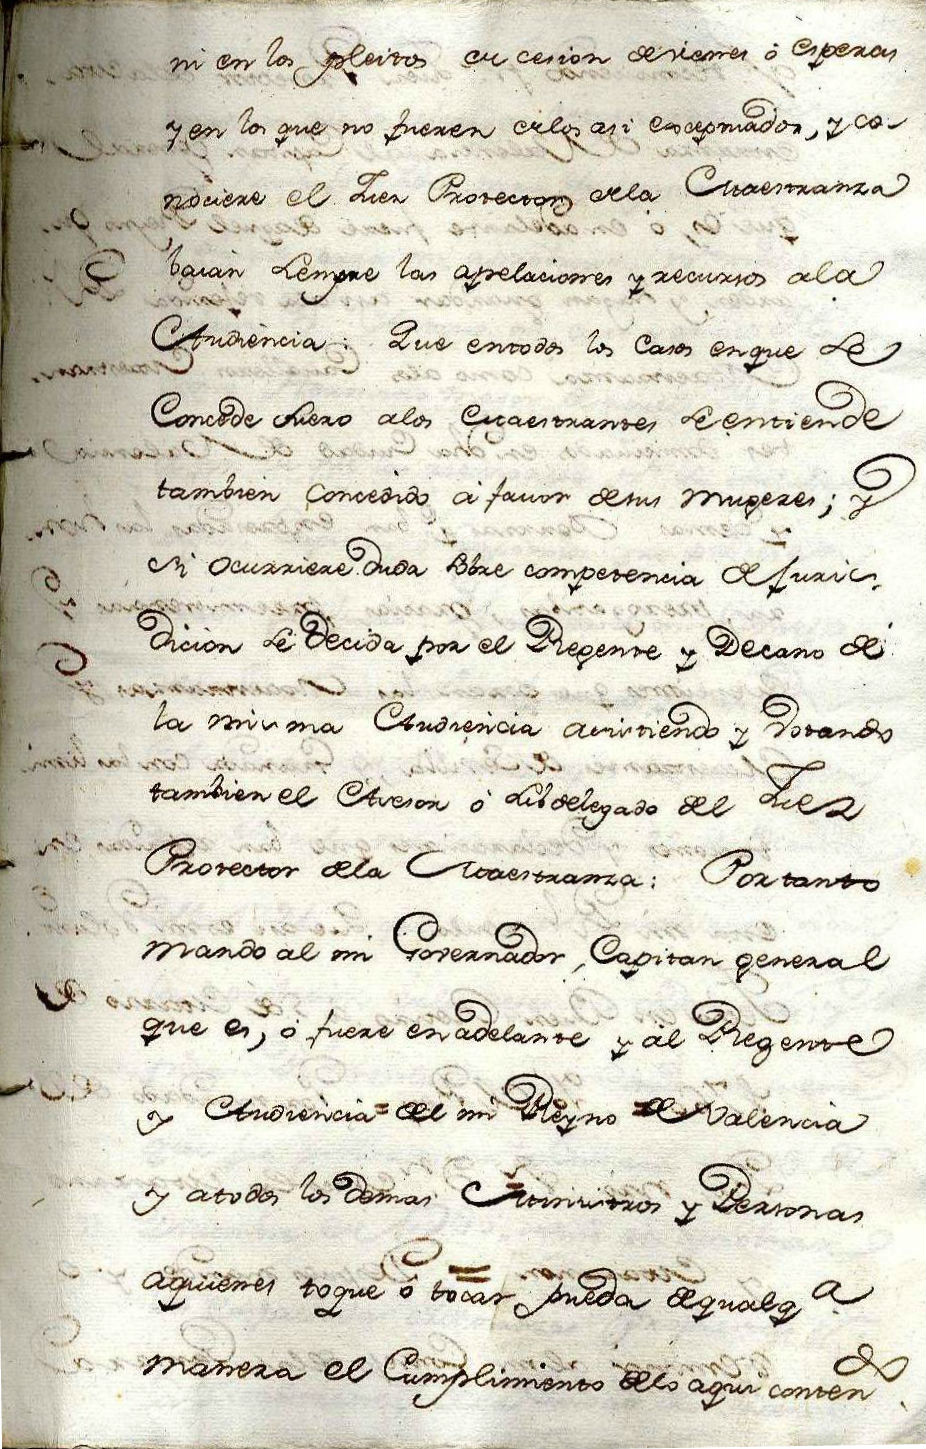 ni en los pleitos de cesion de vienes ô esperas
y en los que no fueren de los asi exceptuados, y co-
nociere el Juez Protector de la Maestranza
baian siempre las apelaciones y recursos a la
Audiencia: Que en todos los Casos en que se
Concede fuero a los Maestrantes se entiende
tambien concedido a favor de sus Mugeres; y
si ocurriere duda sobre competencia de Juris-
dicion se decida por el Regente y Decano de
la misma Audiencia asistiendo y votando
tambien el Asesor ô Subdelegado del Juez
Protector de la Maestranza: Por tanto
mando al mi Governador, Capitan general
que es, ô fuere en adelante y al Regente
y Audiencia del mi Reyno de Valencia
y a todos los demas Ministros y Personas
a quienes toque ô tocar pueda de qualqª
manera el Cumplimiento de lo aqui contendo